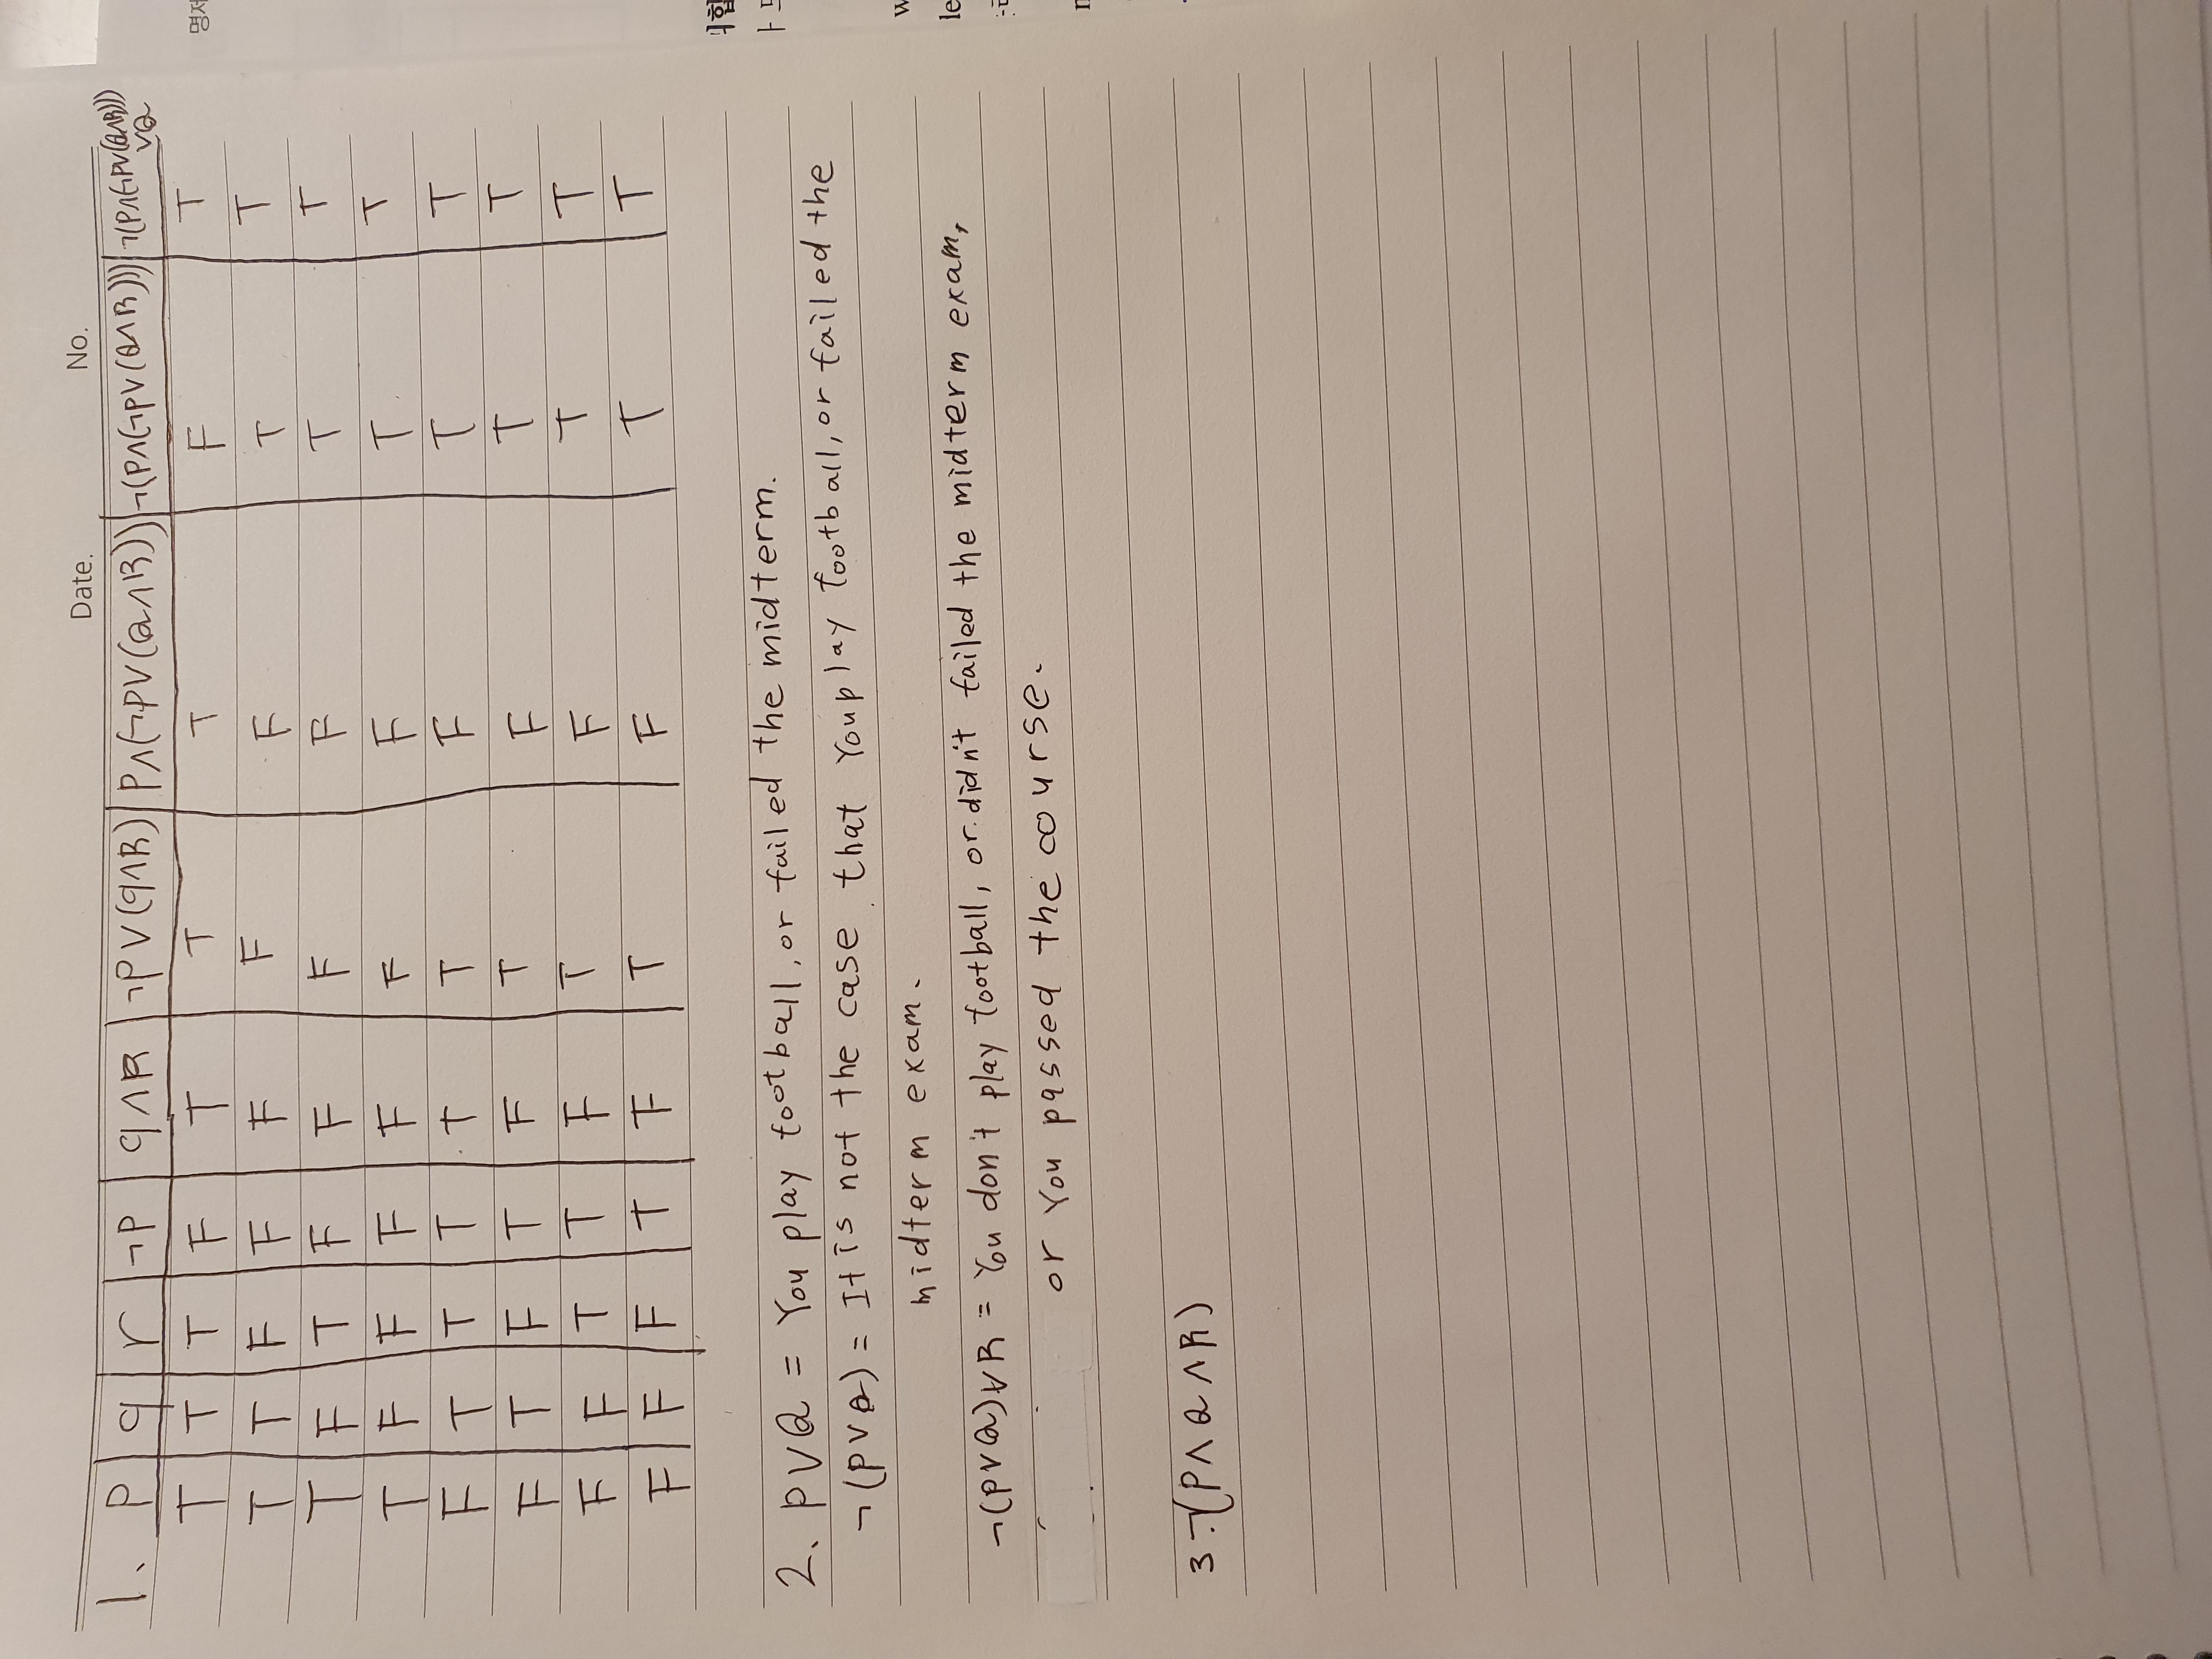 Date. No.
1. P q r ¬P q∧R ¬P∨(q∧R) P∧(¬P∨(Q∧R)) ¬(P∧(¬P∨(Q∧R))) ¬(P∧(¬P∨(Q∧R)))
∨Q
T T T F T T T F T
T T F F F F F T T
T F T F F F F T T
T F F F F F F T T
F T T T T T F T T
F T F T F T F T T
F F T T F T F T T
F F F T F T F T T
2. P∨Q = You play football, or failed the midterm.
¬(P∨Q) = It is not the case that You play football, or failed the
midterm exam.
¬(P∨Q)∨R = You don't play football, or didn't failed the midterm exam,
or You passed the course.
3. ¬(P∧Q∧R)